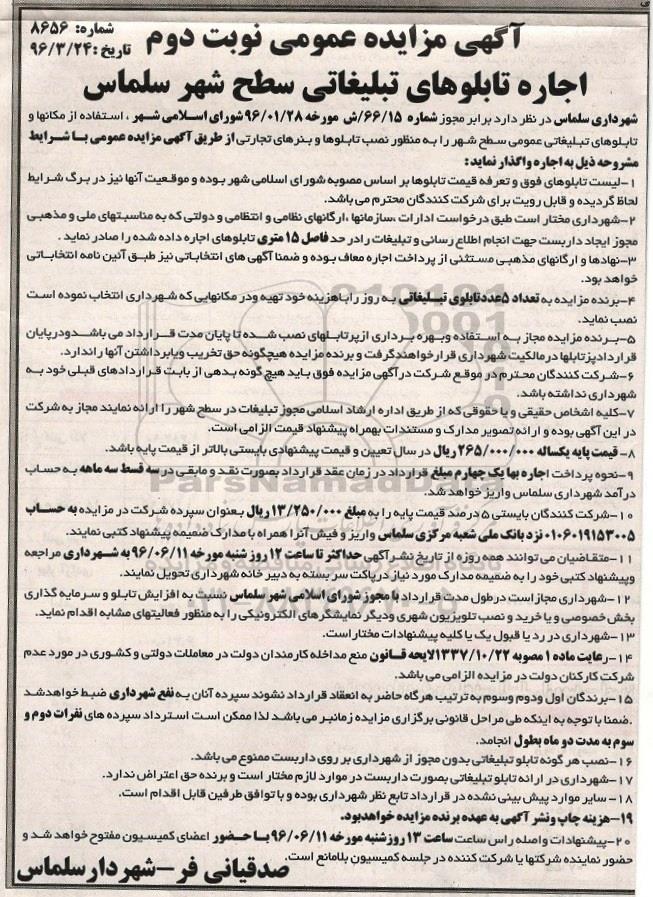 آگهی مزایده عمومی نوبت دوم
شماره: ۸۶۵۶
تاریخ: ۹۶/۳/۲۴
اجاره تابلوهای تبلیغاتی سطح شهر سلماس
شهرداری سلماس در نظر دارد برابر مجوز شماره ۶۶/۱۵/ش مورخه ۹۶/۰۱/۲۸ شورای اسلامی شهر ، استفاده از مکانها و
تابلوهای تبلیغاتی عمومی سطح شهر را به منظور نصب تابلوها و بنرهای تجارتی از طریق آگهی مزایده عمومی با شرایط
مشروحه ذیل به اجاره واگذار نماید:
۱-لیست تابلوهای فوق و تعرفه قیمت تابلوها بر اساس مصوبه شورای اسلامی شهر بوده و موقعیت آنها نیز در برگ شرایط
لحاظ گردیده و قابل رویت برای شرکت کنندگان محترم می باشد.
۲-شهرداری مختار است طبق درخواست ادارات ،سازمانها ،ارگانهای نظامی و انتظامی و دولتی که به مناسبتهای ملی و مذهبی
مجوز ایجاد داربست جهت انجام اطلاع رسانی و تبلیغات رادر حد فاصل ۱۵ متری تابلوهای اجاره داده شده را صادر نماید .
۳-نهادها و ارگانهای مذهبی مستثنی از پرداخت اجاره معاف بوده و ضمنا آگهی های انتخاباتی نیز طبق آئین نامه انتخاباتی
خواهد بود.
۴-برنده مزایده به تعداد ۵عددتابلوی تبلیغاتی به روز را باهزینه خود تهیه ودر مکانهایی که شهرداری انتخاب نموده است
نصب نماید.
۵-برنده مزایده مجاز به استفاده وبهره برداری ازپرتابلهای نصب شده تا پایان مدت قرارداد می باشدودرپایان
قراردادپرتابلها درمالکیت شهرداری قرارخواهندگرفت و برنده مزایده هیچگونه حق تخریب ویابرداشتن آنها راندارد.
۶-شرکت کنندگان محترم در موقع شرکت درآگهی مزایده فوق باید هیچ گونه بدهی از بابت قراردادهای قبلی خود به
شهرداری نداشته باشد.
۷-کلیه اشخاص حقیقی و یا حقوقی که از طریق اداره ارشاد اسلامی مجوز تبلیغات در سطح شهر را ارائه نمایند مجاز به شرکت
در این آگهی بوده و ارائه تصویر مدارک و مستندات بهمراه پیشنهاد قیمت الزامی است.
۸- قیمت پایه یکساله ۲۶۵/۰۰۰/۰۰۰ ریال در سال تعیین و قیمت پیشنهادی بایستی بالاتر از قیمت پایه باشد.
۹-نحوه پرداخت اجاره بها یک چهارم مبلغ قرارداد در زمان عقد قرارداد بصورت نقد و مابقی در سه قسط سه ماهه به حساب
درآمد شهرداری سلماس واریز خواهد شد.
۱۰-شرکت کنندگان بایستی ۵درصد قیمت پایه را به مبلغ ۱۳/۲۵۰/۰۰۰ ریال بعنوان سپرده شرکت در مزایده به حساب
۰۱۰۶۰۱۹۱۵۳۰۰۵ نزد بانک ملی شعبه مرکزی سلماس واریز و فیش آنرا همراه با مدارک ضمیمه پیشنهاد کتبی نمایند.
۱۱-متقاضیان می توانند همه روزه از تاریخ نشر آگهی حداکثر تا ساعت ۱۲ روز شنبه مورخه ۹۶/۰۶/۱۱ به شهرداری مراجعه
وپیشنهاد کتبی خود را به ضمیمه مدارک مورد نیاز درپاکت سر بسته به دبیر خانه شهرداری تحویل نمایند.
۱۲-شهرداری مجازاست درطول مدت قرارداد با مجوز شورای اسلامی شهر سلماس نسبت به افزایش تابلو و سرمایه گذاری
بخش خصوصی و یا خرید و نصب تلویزیون شهری ودیگر نمایشگرهای الکترونیکی را به منظور فعالیتهای مشابه اقدام نماید.
۱۳-شهرداری در رد یا قبول یک یا کلیه پیشنهادات مختار است.
۱۴-رعایت ماده ۱ مصوبه ۱۳۳۷/۱۰/۲۲لایحه قانون منع مداخله کارمندان دولت در معاملات دولتی و کشوری در مورد عدم
شرکت کارکنان دولت در مزایده الزامی می باشد.
۱۵-برندگان اول ودوم وسوم به ترتیب هرگاه حاضر به انعقاد قرارداد نشوند سپرده آنان به نفع شهرداری ضبط خواهدشد
.ضمنا با توجه به اینکه طی مراحل قانونی برگزاری مزایده زمانبر می باشد لذا ممکن است استرداد سپرده های نفرات دوم و
سوم به مدت دو ماه بطول انجامد.
۱۶-نصب هر گونه تابلو تبلیغاتی بدون مجوز از شهرداری بر روی داربست ممنوع می باشد.
۱۷-شهرداری در ارائه تابلو تبلیغاتی بصورت داربست در موارد لازم مختار است و برنده حق اعتراض ندارد.
۱۸- سایر موارد پیش بینی نشده در قرارداد تابع نظر شهرداری بوده و با توافق طرفین قابل اقدام است.
۱۹-هزینه چاپ ونشر آگهی به عهده برنده مزایده خواهدبود.
۲۰-پیشنهادات واصله راس ساعت ساعت ۱۳ روزشنبه مورخه ۹۶/۰۶/۱۱ با حضور اعضای کمیسیون مفتوح خواهد شد و
حضور نماینده شرکتها یا شرکت کننده در جلسه کمیسیون بلامانع است.
صدقیانی فر-شهردار سلماس
ParsNamadData